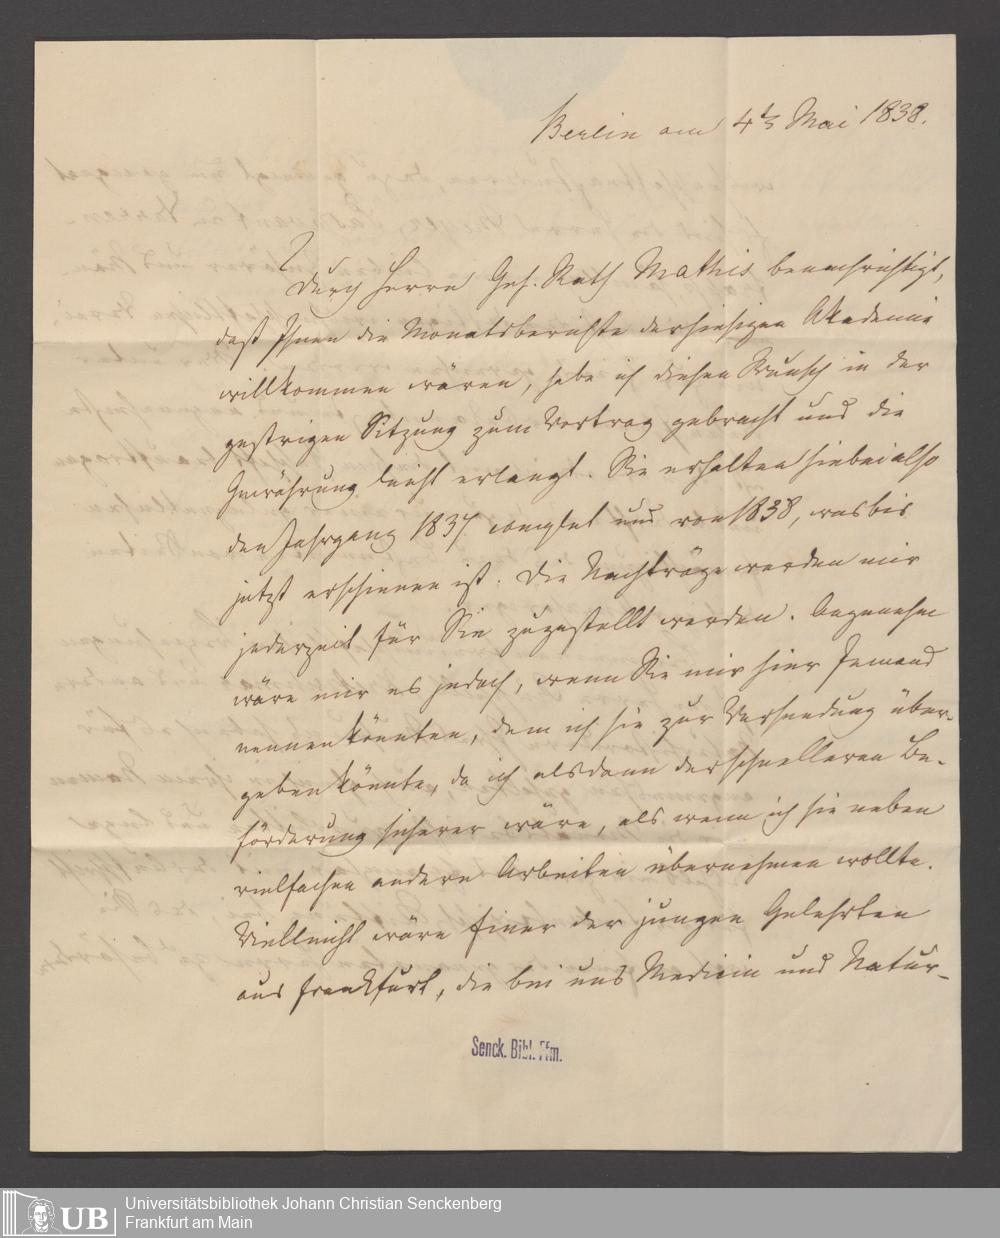 Berlin am 4ts Mai 1838.
Durch Herrn Geh. Rath Mathis benachrichtigt,
daß Ihnen die Monatsberichte der hiesigen Akademie
willkommen wären, habe ich diesen Wunsch in der
gestrigen Sitzung zum Vortrag gebracht und die
Gewährung leicht erlangt. Sie erhalten hiebei also
den Jahrgang 1837 complet und von 1838, was bis
jetzt erschienen ist. Die Nachträge werden mir
jederzeit für Sie zugestellt werden. Angenehm
wäre mir es jedoch, wenn Sie mir hier Jemand
nennen könnten, dem ich sie zur Versendung über-
geben könnte, da ich alsdann der schnelleren Be-
förderung sicherer wäre, als wenn ich sie neben
vielfachen andern Arbeiten übernehmen wollte.
Vielleicht wäre Einer der jungen Gelehrten
aus Frankfurt, die bei uns Medicin und Natur-
Senck. Bibl. Ffm.
UB
Universitätsbibliothek Johann Christian Senckenberg
Frankfurt am Main